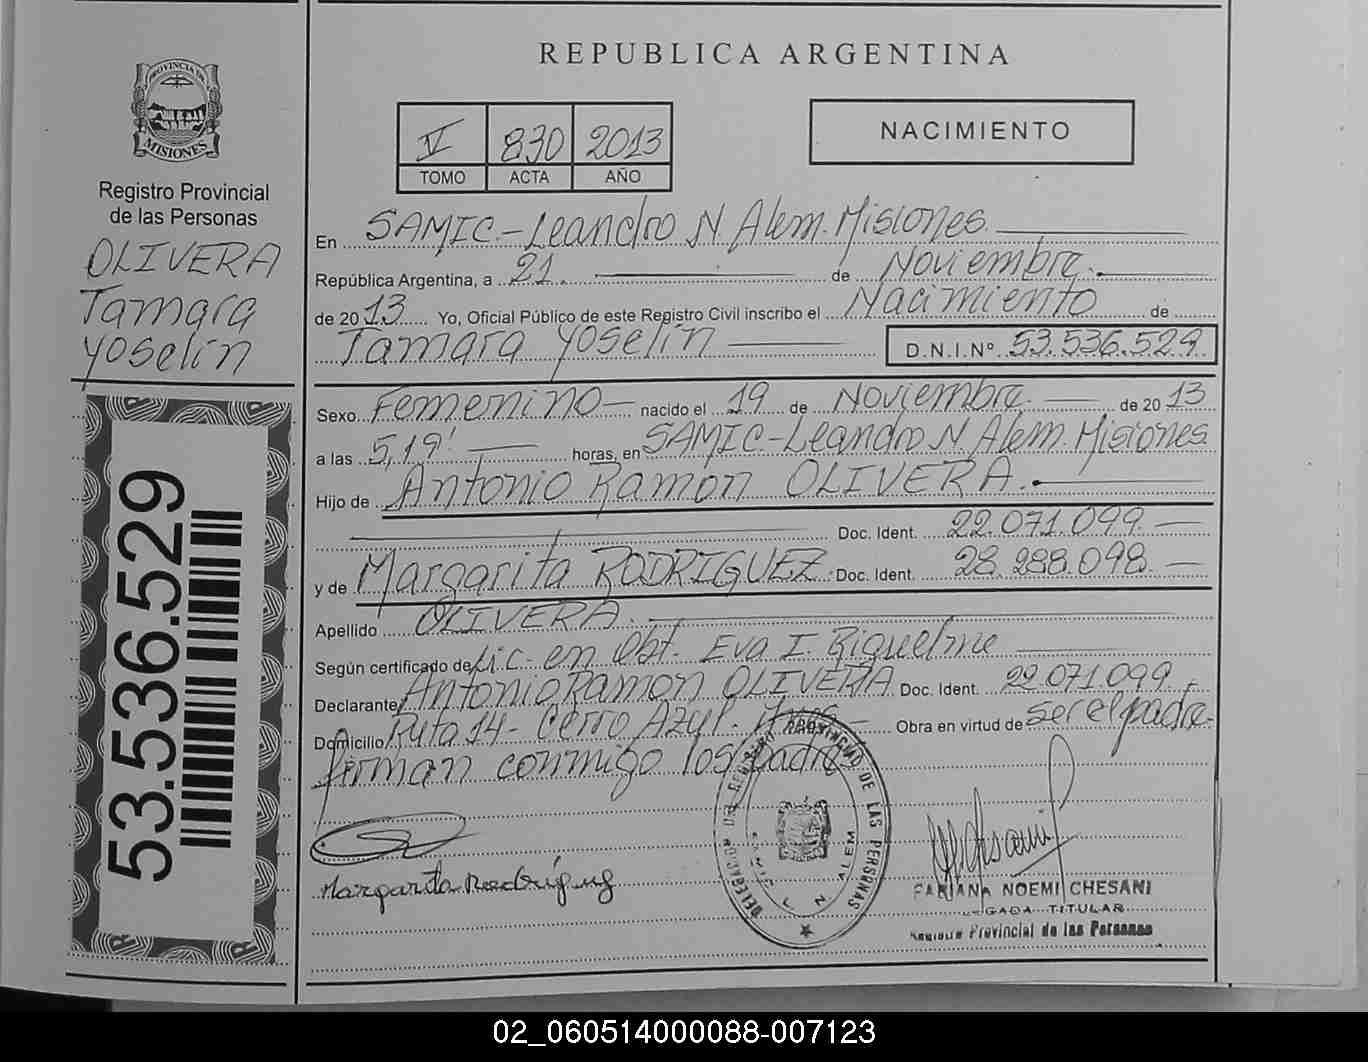 PROVINCIA DE
MISIONES
Registro Provincial
de las Personas
OLIVERA
Tamara
Yoselin
53.536.529
REPUBLICA ARGENTINA
V 830 2013
TOMO ACTA AÑO
NACIMIENTO
En SAMIC.-Leandro N Alem. Misiones.
República Argentina, a 21. de Noviembre.
de 2013 Yo, Oficial Público de este Registro Civil inscribo el Nacimiento de
Tamara Yoselin D.N.I.Nº 53.536.529
Sexo Femenino nacido el 19 de Noviembre. de 2013
a las 5,19' horas, en SAMIC-Leandro N Alem. Misiones
Hijo de Antonio Ramon OLIVERA.
Doc. Ident. 22.071.099
y de Margarita RODRIGUEZ Doc. Ident. 28.288.098.
Apellido OLIVERA.
Según certificado de Lic. en Obt. Eva I. Riquelme
Declarante Antonio Ramon OLIVERA Doc. Ident. 22.071.099
Domicilio Ruta 14- Cerro Azul. Obra en virtud de ser el padre-
firman conmigo los padres
Margarita Rodriguez
DELEGADO DEL REGISTRO PROVINCIAL DE LAS PERSONAS
L. N. ALEM
FABIANA NOEMI CHESANI
DELEGADA TITULAR
Registro Provincial de las Personas
02_060514000088-007123